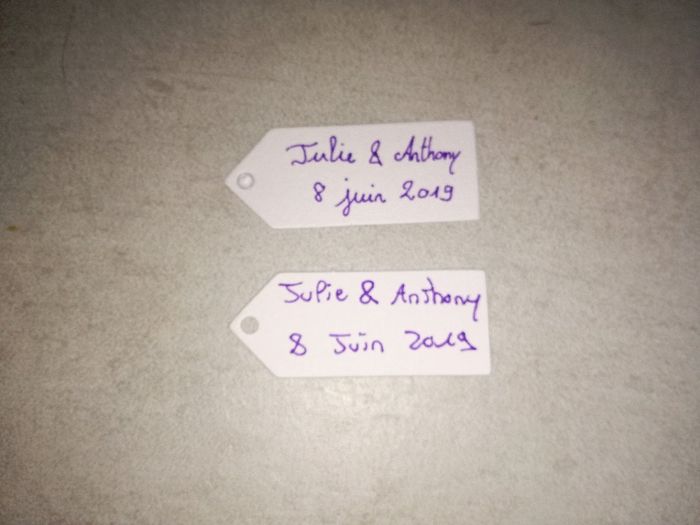 Julie & Anthony
8 juin 2019
Julie & Anthony
8 Juin 2019